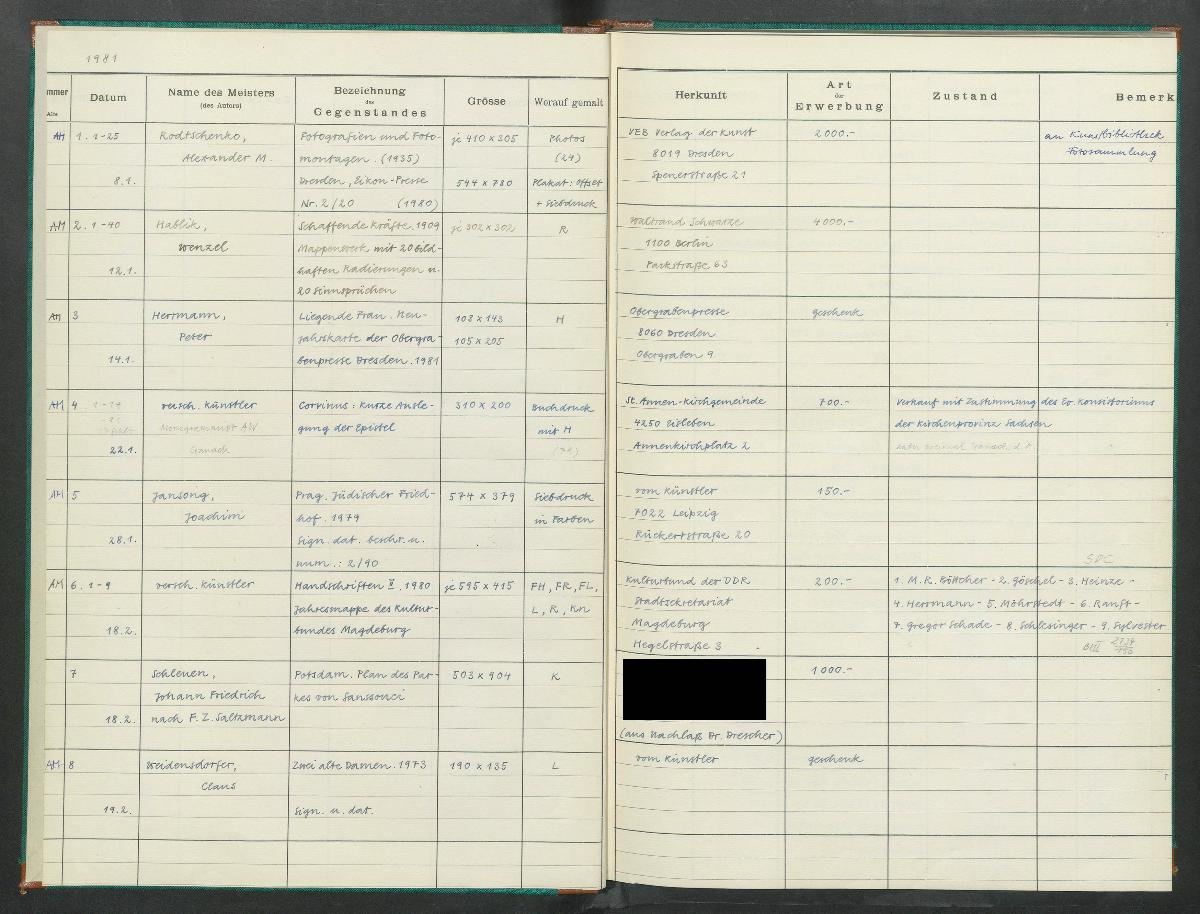 1981
Datum
Name des Meisters
(des Autors)
Bezeichnung
des
Gegenstandes
Grösse
Worauf gemalt
AM 1. 1-25
Rodtschenko,
Fotografien und Foto-
je 410 x 305
Photos
Alexander M.
montagen. (1935)
(24)
8.1.
Dresden, Eikon-Presse
544 x 780
Plakat: Offset
Nr. 2/20 (1980)
+ Siebdruck
AM 2. 1-40
Hablik,
Schaffende Kräfte. 1909
je 302 x 302
R
Wenzel
Mappenwerk mit 20 bild-
12.1.
haften Radierungen u.
20 Sinnsprüchen
AM 3
Herrmann,
Liegende Frau. Neu-
108 x 143
H
Peter
jahrskarte der Obergra-
105 x 205
14.1.
benpresse Dresden. 1981
AM 4
versch. Künstler
Corvinus: Kurze Ausle-
310 x 200
Buchdruck
Monogrammist AW
gung der Epistel
mit H
22.1.
Cranach
AM 5
Jansong,
Prag. Jüdischer Fried-
574 x 379
Siebdruck
Joachim
hof. 1979
in Farben
28.1.
Sign. dat. beschr. u.
num.: 2/90
AM 6. 1-9
versch. Künstler
Handschriften II. 1980
je 595 x 415
FH, FR, FL,
Jahresmappe des Kultur-
L, R, Kn
18.2.
bundes Magdeburg
7
Schleuen,
Potsdam. Plan des Par-
503 x 904
K
Johann Friedrich
kes von Sanssouci
18.2.
nach F. Z. Saltzmann
AM 8
Weidensdorfer,
Zwei alte Damen. 1973
190 x 135
L
Claus
19.2.
Sign. u. dat.
Herkunft
Art
der
Erwerbung
Zustand
Bemerk
VEB Verlag der Kunst
2000.-
an Kunstbibliothek
8019 Dresden
Fotosammlung
Spenerstraße 21
Waltraud Schwarze
4000.-
1100 Berlin
Parkstraße 63
Obergrabenpresse
geschenk
8060 Dresden
Obergraben 9
St. Annen-Kirchgemeinde
700.-
Verkauf mit Zustimmung des Ev. Konsistoriums
4250 Eisleben
der Kirchenprovinz Sachsen
Annenkirchplatz 2
vom Künstler
150.-
7022 Leipzig
Rückertstraße 20
Kulturbund der DDR
200.-
1. M.R. Böttcher - 2. Göschel - 3. Heinze -
Stadtsekretariat
4. Herrmann - 5. Möhrstedt - 6. Ranft -
Magdeburg
7. Gregor Schade - 8. Schlesinger - 9. Sylvester
Hegelstraße 3
1000.-
(aus Nachlaß Dr. Drescher)
vom Künstler
geschenk